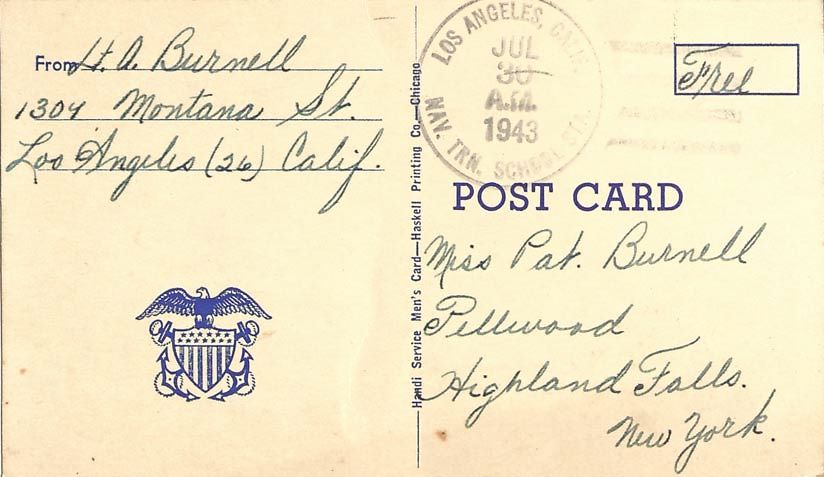 From Lt. A. Burnell
1304 Montana St.
Los Angeles (26) Calif.
LOS ANGELES, CALIF.
JUL
30
A.M.
1943
NAV. TRN. SCHOOL STA.
Free
Handi Service Men's Card—Haskell Printing Co.—Chicago
POST CARD
Miss Pat. Burnell
Pellwood
Highland Falls.
New York.